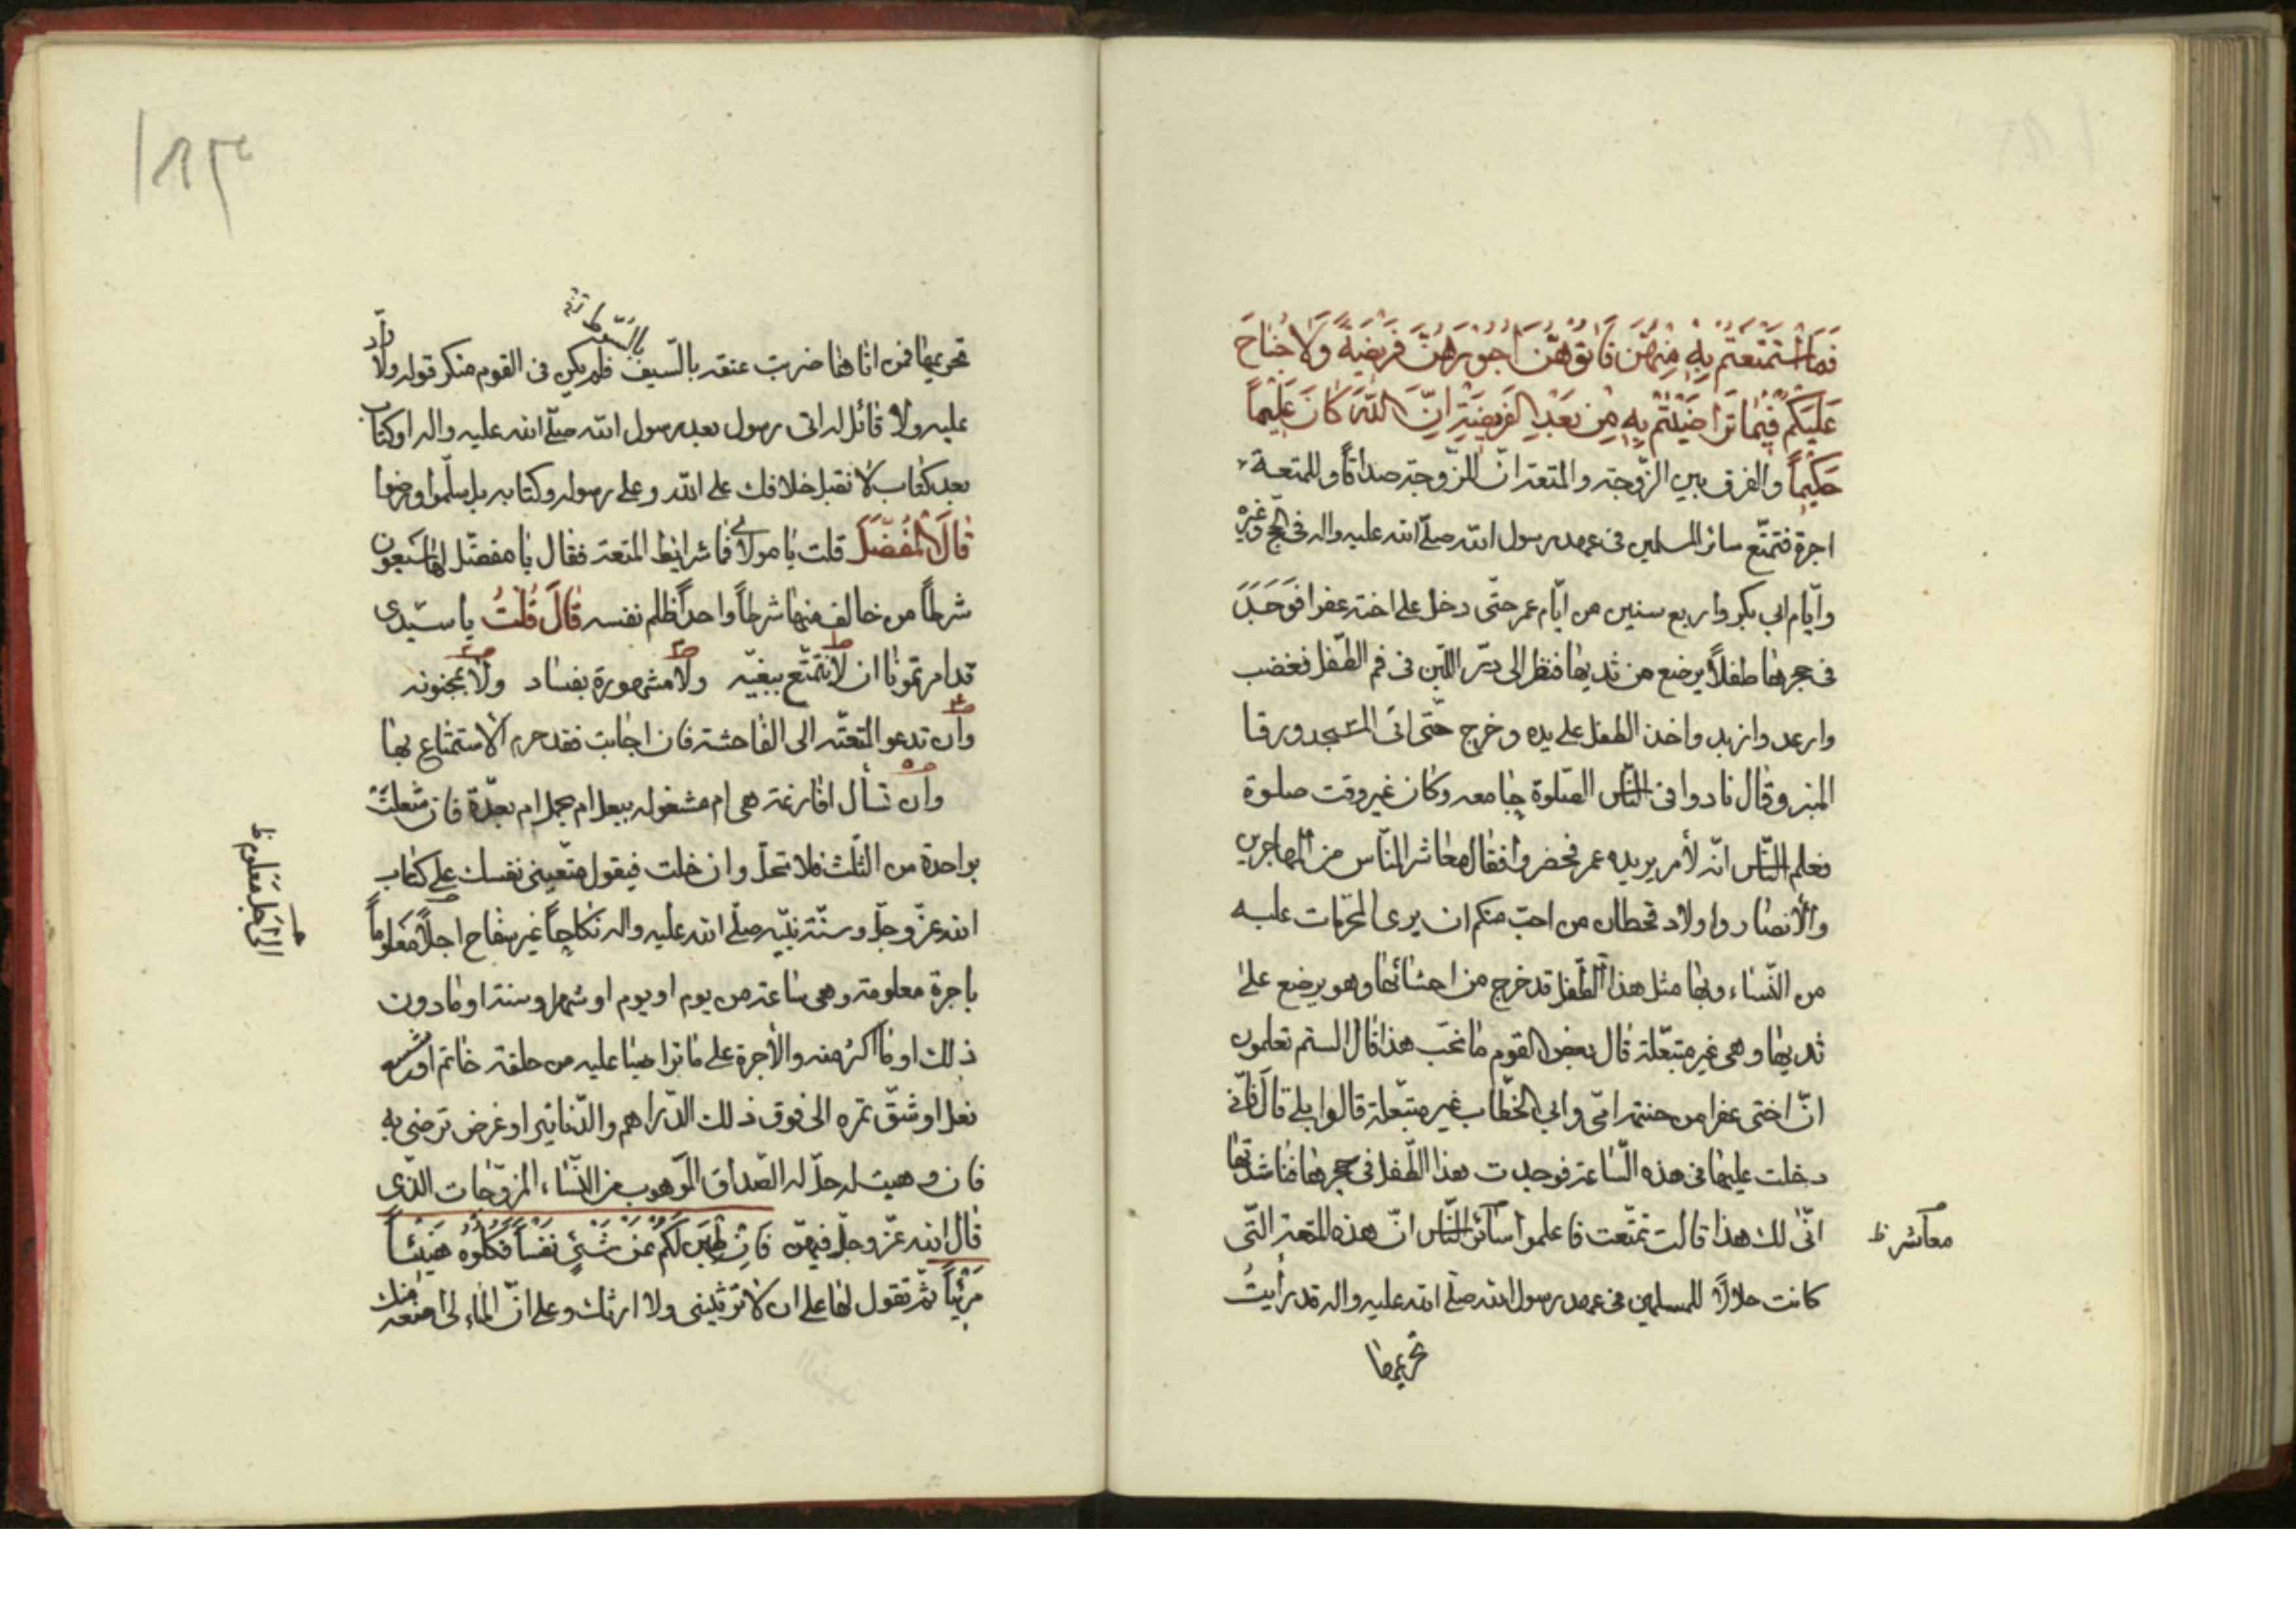 فَمَا اسْتَمْتَعْتُمْ بِهِ مِنْهُنَّ فَاٰتُوهُنَّ اُجُورَهُنَّ فَرِيضَةً وَلَا جُنَاحَ
عَلَيْكُمْ فِيمَا تَرَاضَيْتُمْ بِهِ مِنْ بَعْدِ الْفَرِيضَةِ اِنَّ اللّٰهَ كَانَ عَلِيمًا
حَكِيمًا والفرق بين الزّوجة والمتعة انّ للزّوجة صداقاً وللمتعة
اجرة فتمتّع سائر المسلمين فى عهد رسول الله صلّى الله عليه واله فى الحج وغيره
وايّام ابي بكر واربع سنين من ايّام عمر حتّى دخل على اخته عفرا فَوَجَدَ
فى حجرها طفلاً يرضع من ثديها فنظر الى درّة اللّبن فى فم الطّفل فغضب
وارعد وازبد واخذ الطفل على يده وخرج حتّى اتى المسجد ورقا
المنبر وقال نادوا فى النّاس الصّلوة جامعه وكان غير وقت صلوة
فعلم النّاس انّه لأمر يريده عمر فحضروا فقال معاشر النّاس من المهاجرين
والأنصار واولاد قحطان من احبّ منكم ان يرى المحرّمات عليه
من النّساء ولها مثل هذا الطّفل قد خرج من احشائها وهو يرضع على
ثديها وهى غير متبعّلة قال بعض القوم ما نحبّ هذا قال الستم تعلمون
انّ اختى عفرا من حنتمه امّى وابي الخطّاب غير متبعّلة قالوا بلى قال فانّى
دخلت عليها فى هذه السّاعة فوجدت هذا الطّفل فى حجرها فناشدتها
انّى لك هذا قالت تمتّعت فاعلموا سائر النّاس انّ هذه المتعة الّتى
معاشر ظ
كانت حلالاً للمسلمين فى عهد رسول الله صلّى الله عليه واله قد رأيتُ
تحريمها
١٨٣
تحريمها فمن اتاها ضربت عنقه بالسّيف فلم يكن فى القوم منكر قوله ولا رادّ
بالسّوط
عليه ولا قائل له اتى رسول بعد رسول الله صلّى الله عليه واله او كتاب
بعد كتاب لا نقبل خلافك على الله وعلى رسوله وكتابه بل سلّموا ورضوا
قَالَ الْمُفَضَّل قلت يا مولاى فما شرايط المتعة فقال يا مفضّل لها سبعون
شرطاً من خالف منها شرطاً واحداً ظلم نفسه قَالَ قُلْتُ يا سيّدى
قد امرتمونا ان لا نتمتّع ببغيّه ولا مشهورة بفساد ولا بمجنونه
وان تدعو المتعة الى الفاحشة فان اجابت فقد حرم الاستمتاع بها
وان تسأل افارغة هى ام مشغوله ببعل ام بحمل ام بعدّة فان شغلت
بواحدة من الثّلث فلا تحلّ وان خلت فيقول متّعينى نفسك على كتاب
الله عزّ وجلّ وسنّة نبيّه صلّى الله عليه واله نكاحاً غير سفاح اجلاً معلوماً
الى اجل معلوم ظ
باجرة معلومة وهى ساعة من يوم او يوم او شهر او سنة او ما دون
ذلك او ما اكثر منه والأجرة على ما تراضيا عليه من حلقة خاتم او شسع
نعل او شقّ تمره الى فوق ذلك الدّراهم والدّنانير او غرض ترضى به
فان وهبت له حلّ له الصّداق الموهوب من النّساء المزوّجات الذى
قال الله عزّ وجلّ فيهنّ فَاِنْ طِبْنَ لَكُمْ عَنْ شَيْءٍ نَفْسًا فَكُلُوهُ هَنِيئًا
مَرِيئًا ثمّ تقول لها على ان لا ترثينى ولا ارثك وعلى انّ الماء لى اضعه منك